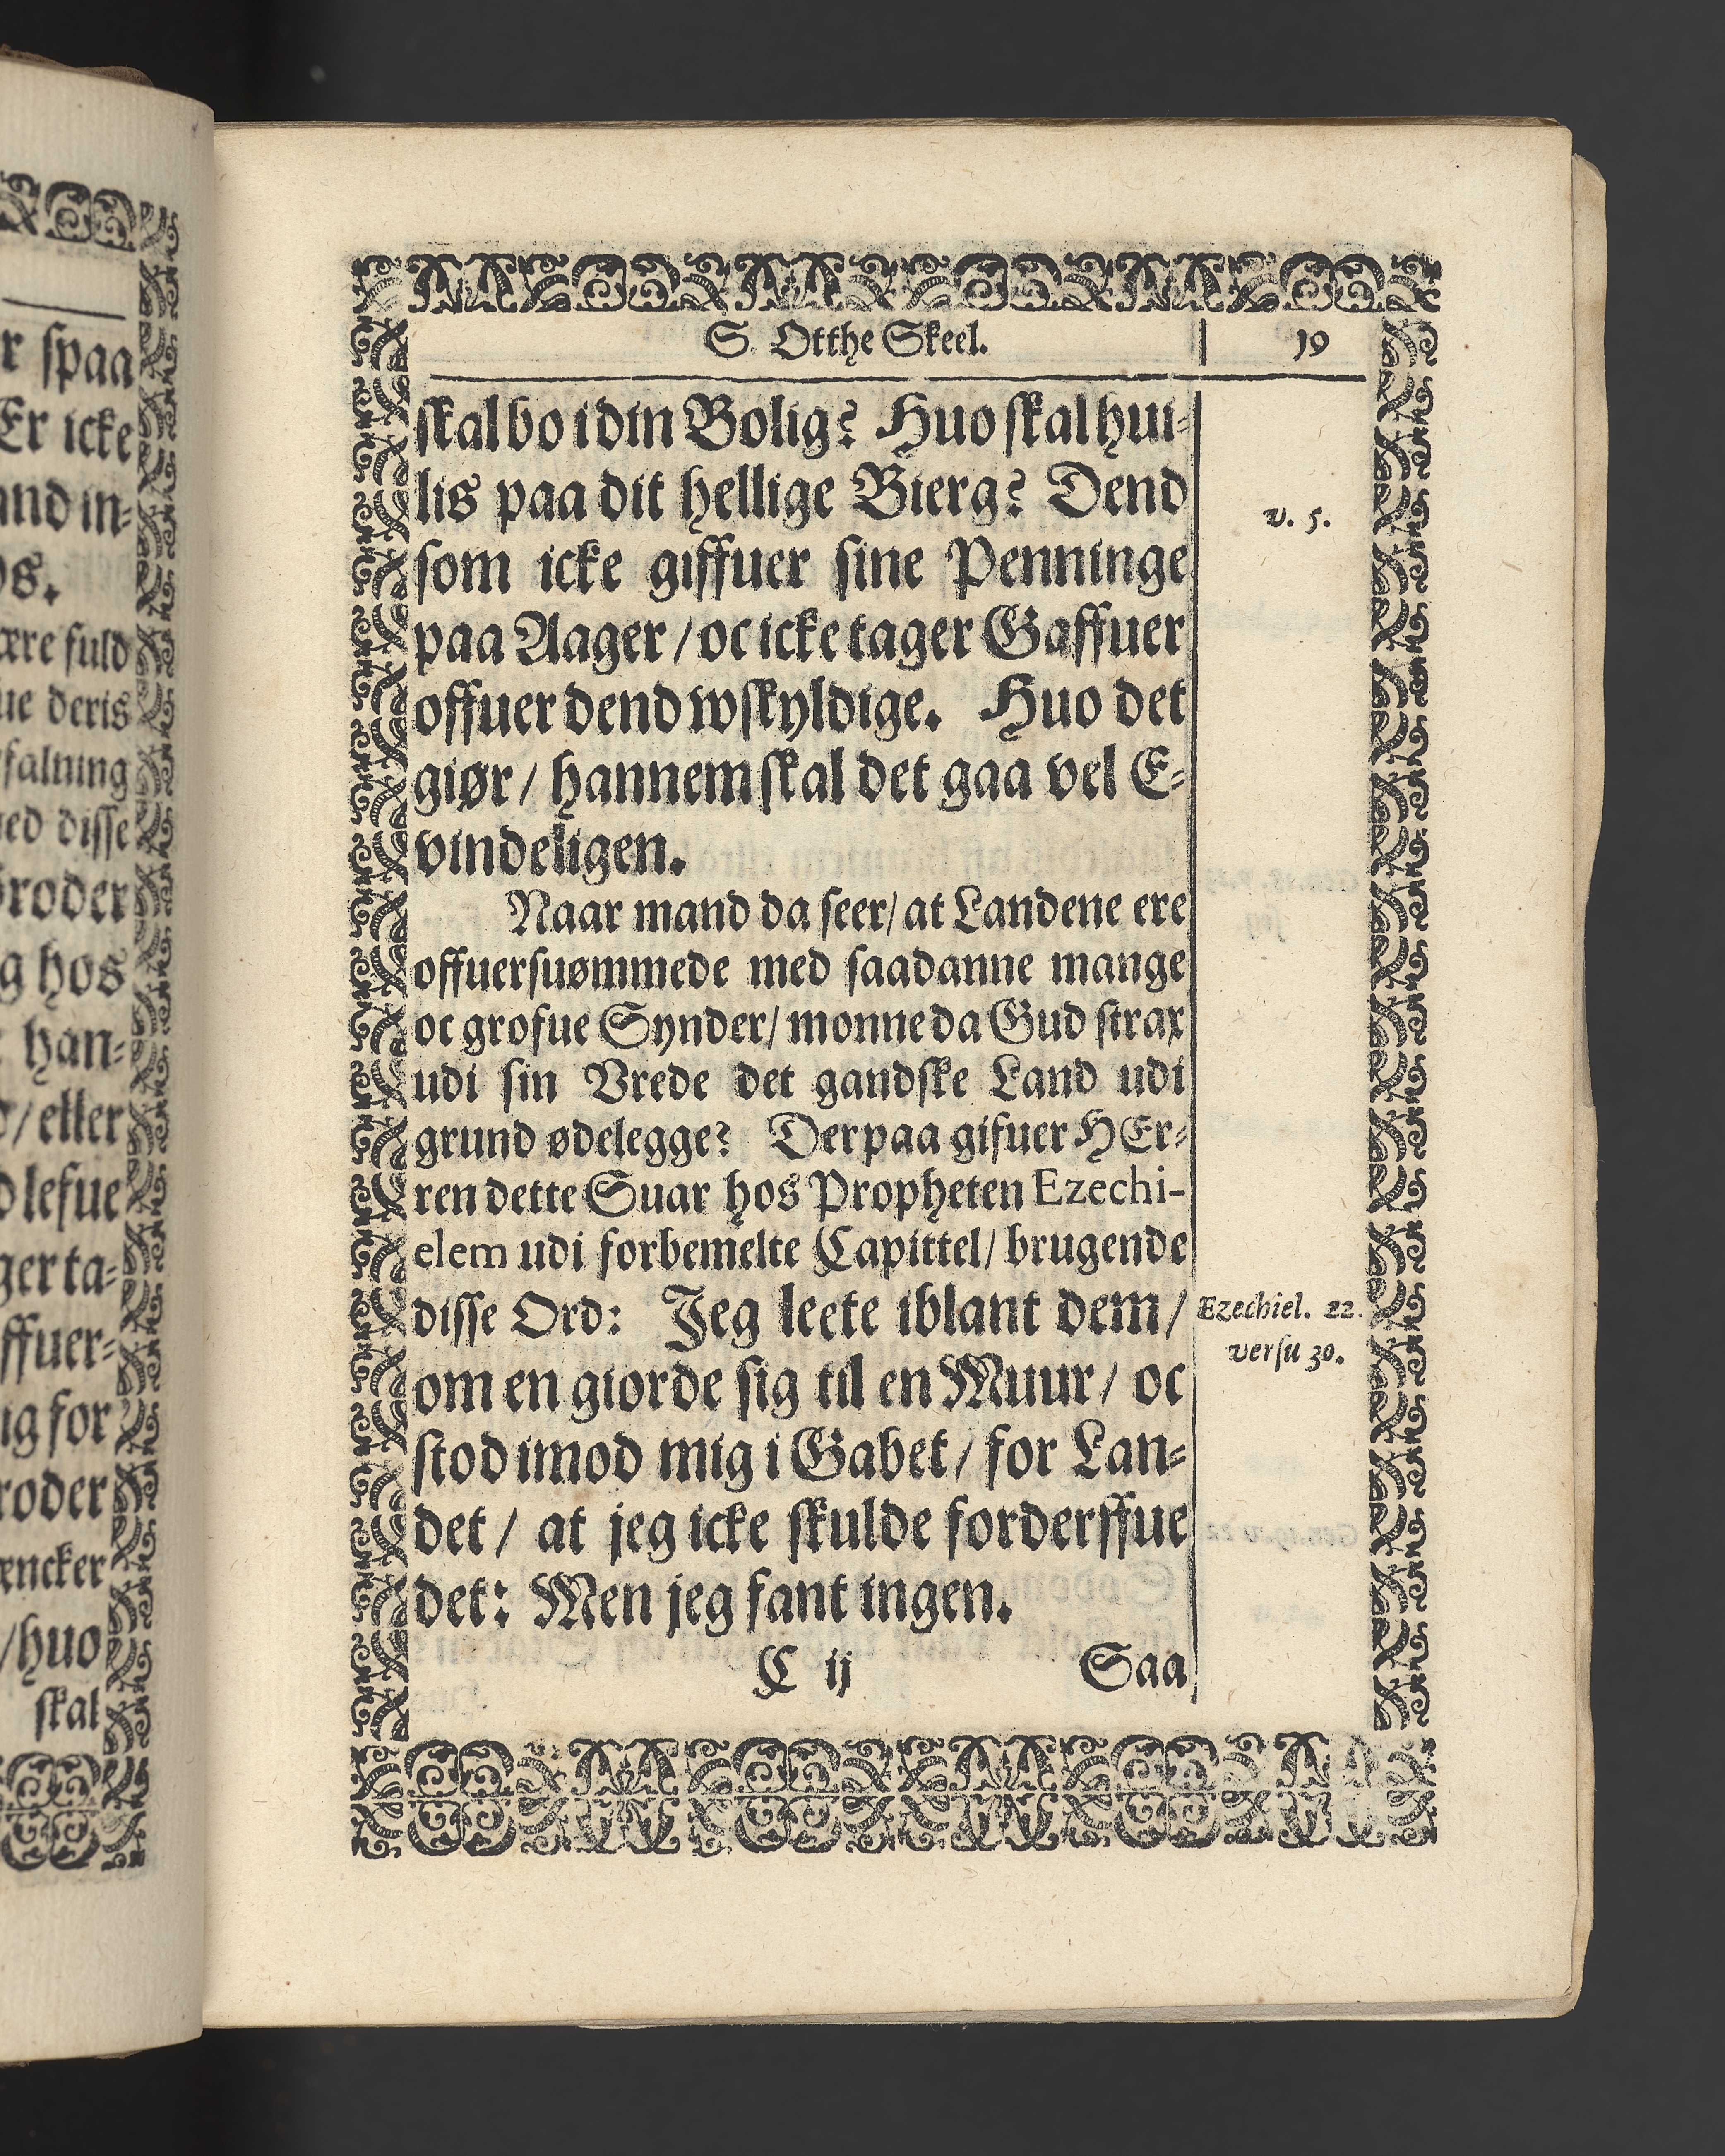 r spaa
Er icke
and in-
os.
ære fuld
ue deris
sfalning
ned disse
Broder
g hos
han-
/ eller
d lefue
ger ta-
ffuer-
ig for
roder
æncker
/ huo
skal
S. Otthe Skeel. 19
skal bo i din Bolig? Huo skal hui-
lis paa dit hellige Bierg? Dend
v. 5.
som icke giffuer sine Penninge
paa Aager / oc icke tager Gaffuer
offuer dend wskyldige. Huo det
giør / hannem skal det gaa vel E-
vindeligen.
Naar mand da seer / at Landene ere
offuersuømmede med saadanne mange
oc grofue Synder / monne da Gud strax
udi sin Vrede det gandske Land udi
grund ødelegge? Derpaa gifuer HEr-
ren dette Suar hos Propheten Ezechi-
elem udi forbemelte Capittel / brugende
disse Ord: Jeg leete iblant dem /
Ezechiel. 22.
versu 30.
om en giorde sig til en Muur / oc
stod imod mig i Gabet / for Lan-
det / at jeg icke skulde forderffue
det: Men jeg fant ingen.
C ij Saa